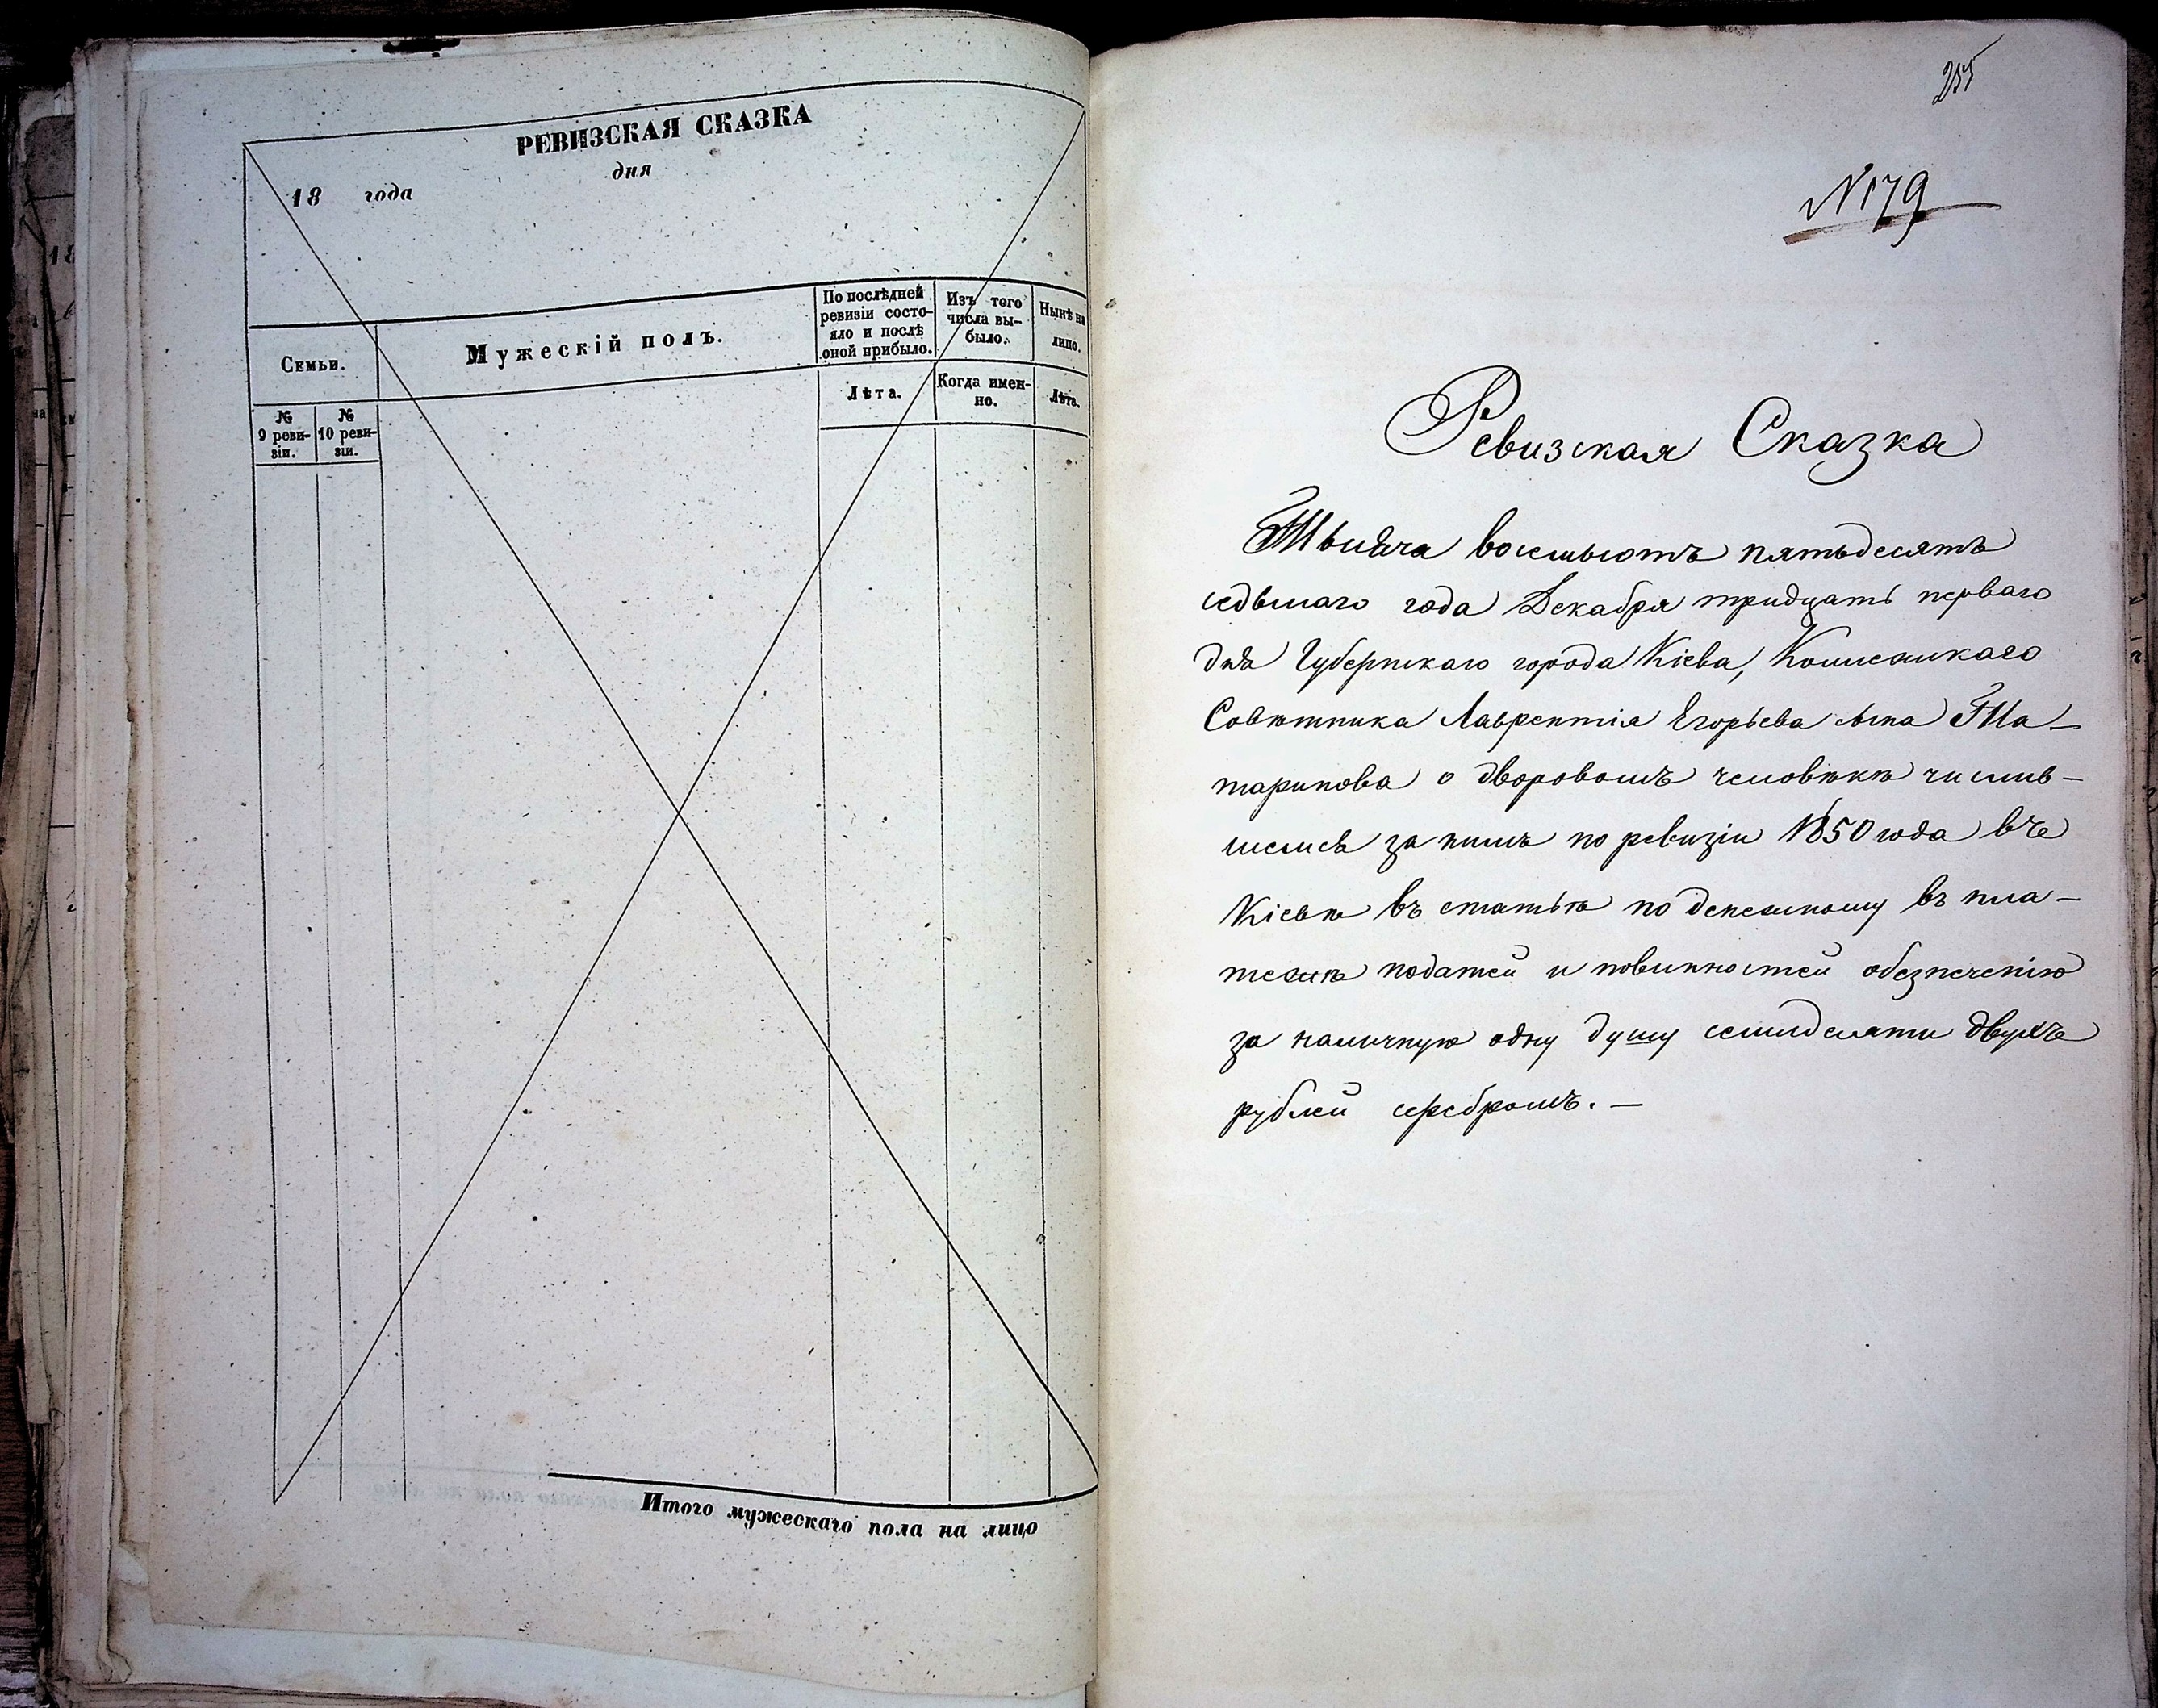 РЕВИЗСКАЯ СКАЗКА
дня
18 года
Семьи.
Мужескій полъ.
По послѣдней
ревизіи состо-
яло и послѣ
оной прибыло.
Изъ того
числа вы-
было.
Нынѣ на
лицо.
№
9 реви-
зіи.
№
10 реви-
зіи.
Лѣта.
Когда имен-
но.
Лѣта.
Итого мужескаго пола на лицо
255
№179
Ревизская Сказка
Тысяча восемьсотъ пятьдесятъ
седьмаго года Декабря тридцать перваго
дня Губернскаго города Кіева, Колежскаго
Совѣтника Лаврентія Егорьева сына Та-
таринова о дворовомъ человѣкѣ числив-
шемся за нимъ по ревизіи 1850 года въ
Кіевѣ въ статьѣ по денежному въ пла-
тежѣ податей и повинностей обезпеченію
за наличную одну душу семидесяти двухъ
рублей серебромъ. —